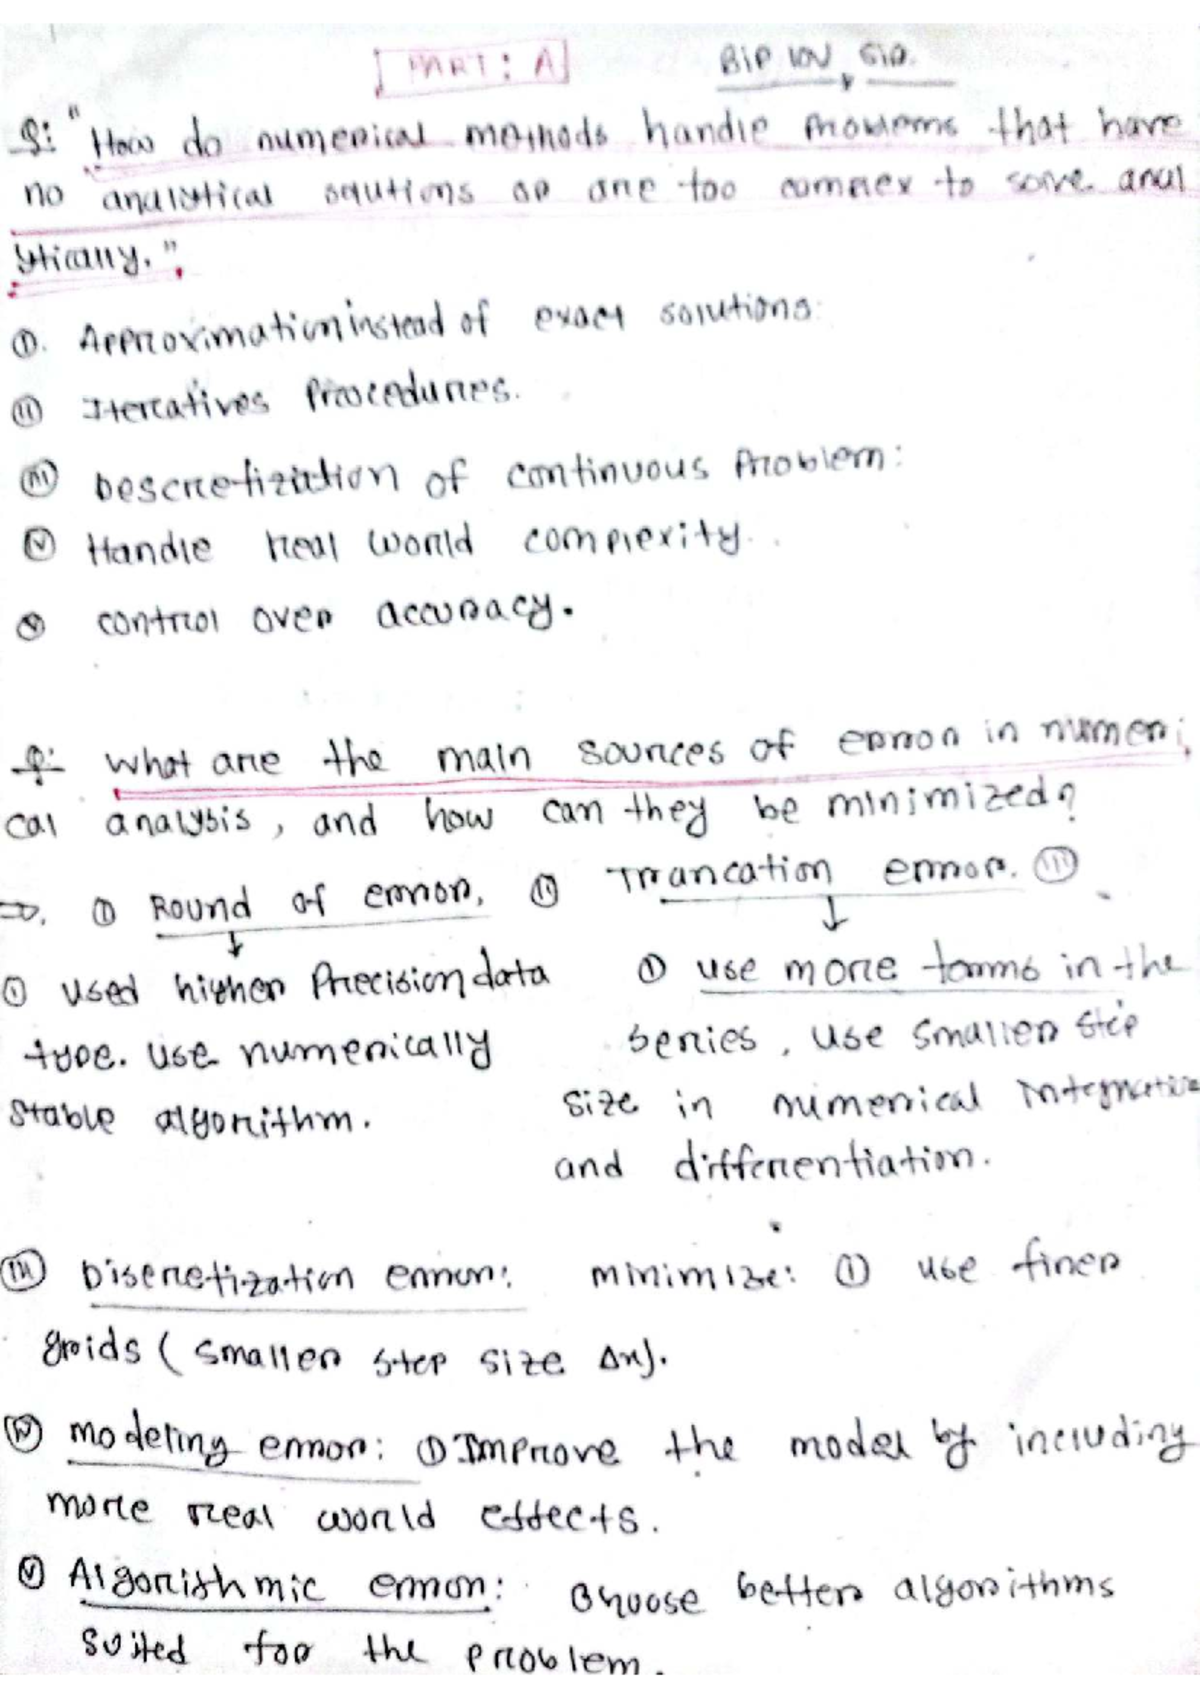 PART: A BIPLOV SIR.
Q: "How do numerical methods handle problems that have
no analytical solutions or are too complex to solve anal
ytically."
(I). Approximation instead of exact solutions:
(II) Iteratives Procedures.
(III) Descretization of continuous Problem:
(IV) Handle real world complexity.
(V) control over accuracy.
Q: What are the main sources of error in numeri
cal analysis, and how can they be minimized?
⇒. (I) Round of error, (II) Trancation error. (III)
(I) used higher Precision data
type. Use numerically
stable algorithm.
(I) use more terms in the
series, use smaller step
size in numerical integration
and differentiation.
(III) Discretization error: minimize: (I) use finer
grids (smaller step size Δx).
(IV) modeling error: (I) Improve the model by including
more real world effects.
(V) Algorithmic error: Choose better algorithms
suited for the problem.